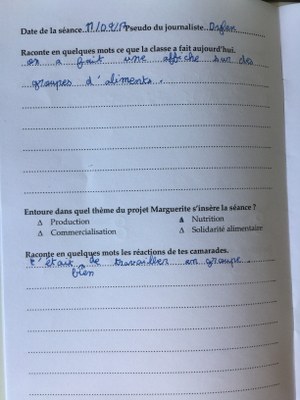 Date de la séance 17/09/17 Pseudo du journaliste
Raconte en quelques mots ce que la classe a fait aujourd'hui.
on a fait une affiche sur des
groupes d'aliments.
Entoure dans quel thème du projet Marguerite s'insère la séance ?
Δ Production
▲ Nutrition
Δ Commercialisation
Δ Solidarité alimentaire
Raconte en quelques mots les réactions de tes camarades.
c'était bien de travailler en groupe.